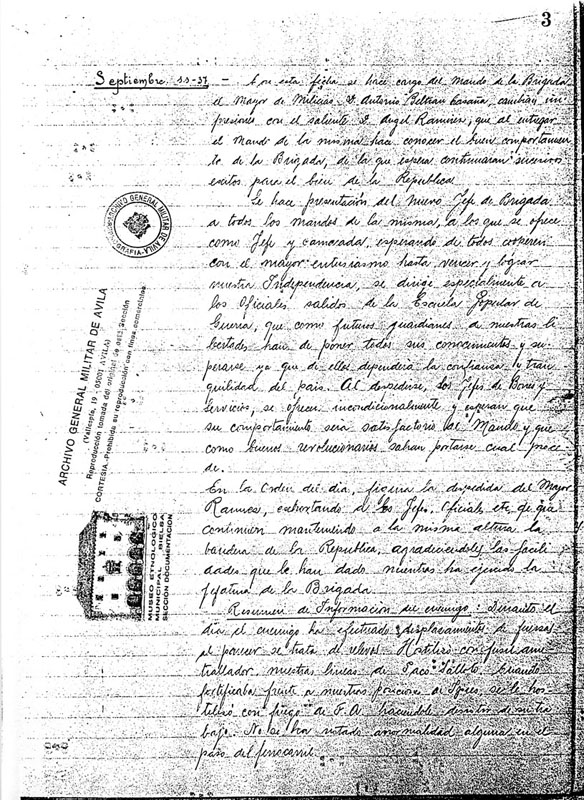 3
Septiembre 11-37. - Con esta fecha se hace cargo del Mando de la Brigada
el Mayor de Milicias D. Antonio Beltran Casaña, cambian im
presiones con el saliente D. Angel Ramirez, que al entregar
el Mando de la misma hace conocer el buen comportamien
to de la Brigada, de la que espera continuaran sucesivos
exitos para el bien de la Republica
Se hace presentación del nuevo Jefe de Brigada
a todos los mandos de la misma, a los que se ofrece
como Jefe y camarada, esperando de todos cooperen
con el mayor entusiasmo hasta vencer y lograr
nuestra Independencia, se dirige especialmente a
los Oficiales salidos de la Escuela Popular de
Guerra, que como futuros guardianes de nuestras li
bertades han de poner todos sus conocimientos y su
perarse ya que de ellos dependerá la confianza y tran
quilidad del pais. Al despedirse, los Jefes de Bones y
Servicios, se ofrecen incondicionalmente y esperan que
su comportamiento sera satisfactorio al Mando y que
como buenos revolucionarios sabran portarse cual proce
de.
En la Orden del dia, figura la despedida del Mayor
Ramirez, exhortando a los Jefes, Oficiales etc. 
continuen manteniendo a la misma altura la
bandera de la Republica, agradeciendoles las facili
dades que le han dado mientras ha ejercido la
jefatura de la Brigada.
Resumen de Informacion del enemigo. Durante el
dia el enemigo ha efectuado desplazamientos de fuerzas
al parecer se trata de relevos. Hostilizó con fusil ame
trallador, nuestras lineas de Paco Cuando
fortificaba frente a nuestras posiciones de se le hos
tilizó con fuego de F.A. haciendole desistir de su tra
bajo. No se ha notado anormalidad alguna en el
paso del ferrocarril
ARCHIVO GENERAL MILITAR DE AVILA
(Vallespín, 19 - 05001 AVILA)
Reproducción tomada del original de esta sección
CORTESIA.-Prohibida su reproducción con fines comerciales
MUSEO ETNOLOGICO
MUNICIPAL BIELSA
SECCIÓN DOCUMENTACION